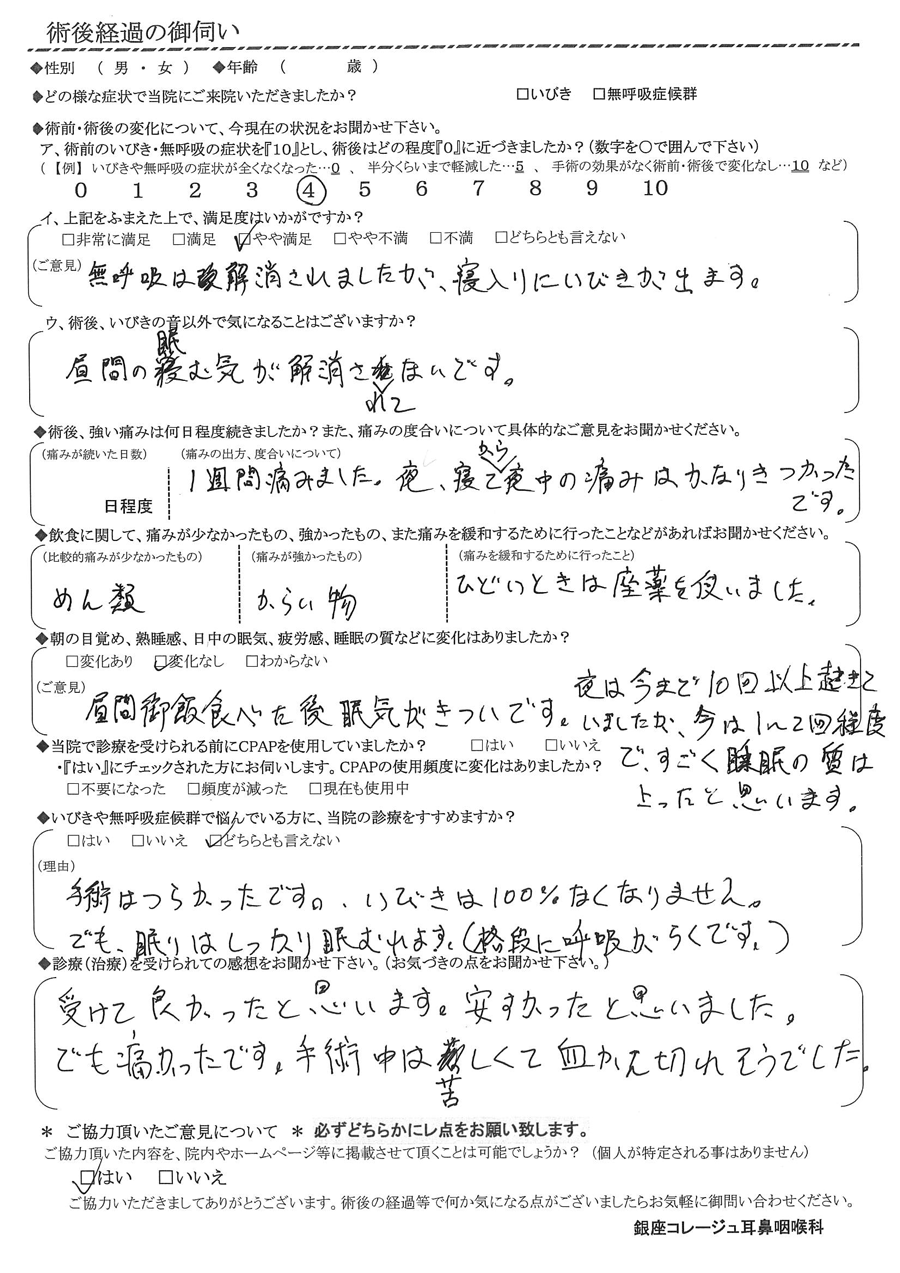 術後経過の御伺い
◆性別 （ 男 ・ 女 ） ◆年齢 （ 歳 ）
◆どの様な症状で当院にご来院いただきましたか？ □いびき □無呼吸症候群
◆術前・術後の変化について、今現在の状況をお聞かせ下さい。
ア、術前のいびき・無呼吸の症状を『10』とし、術後はどの程度『0』に近づきましたか？（数字を○で囲んで下さい）
（【例】 いびきや無呼吸の症状が全くなくなった…0 、 半分くらいまで軽減した…5 、 手術の効果がなく術前・術後で変化なし…10 など）
0 1 2 3 4 5 6 7 8 9 10
イ、上記をふまえた上で、満足度はいかがですか？
□非常に満足 □満足 ☑やや満足 □やや不満 □不満 □どちらとも言えない
(ご意見) 無呼吸は解消されましたが、寝入りにいびきが出ます。
ウ、術後、いびきの音以外で気になることはございますか？
昼間の眠む気が解消されてないです。
◆術後、強い痛みは何日程度続きましたか？また、痛みの度合いについて具体的なご意見をお聞かせください。
(痛みが続いた日数) (痛みの出方、度合いについて)
日程度 1週間痛みました。夜、寝てから夜中の痛みはかなりきつかった
です。
◆飲食に関して、痛みが少なかったもの、強かったもの、また痛みを緩和するために行ったことなどがあればお聞かせください。
(比較的痛みが少なかったもの) (痛みが強かったもの) (痛みを緩和するために行ったこと)
めん類 からい物 ひどいときは座薬を使いました。
◆朝の目覚め、熟睡感、日中の眠気、疲労感、睡眠の質などに変化はありましたか？
□変化あり ☑変化なし □わからない
(ご意見) 昼間御飯食べた後眠気がきついです。
夜は今まで10回以上起きて
いましたが、今は1〜2回程度
で、すごく睡眠の質は
上ったと思います。
◆当院で診療を受けられる前にCPAPを使用していましたか？ □はい □いいえ
・『はい』にチェックされた方にお伺いします。CPAPの使用頻度に変化はありましたか？
□不要になった □頻度が減った □現在も使用中
◆いびきや無呼吸症候群で悩んでいる方に、当院の診療をすすめますか？
□はい □いいえ ☑どちらとも言えない
(理由)
手術はつらかったです。、いびきは100%なくなりません。
でも、眠りはしっかり眠むれます。(格段に呼吸がらくです。)
◆診療(治療)を受けられての感想をお聞かせ下さい。(お気づきの点をお聞かせ下さい。)
受けて良かったと思います。安すかったと思いました。
でも痛かったです。手術中は苦しくて血かん切れそうでした。
＊ ご協力頂いたご意見について ＊ 必ずどちらかにレ点をお願い致します。
ご協力頂いた内容を、院内やホームページ等に掲載させて頂くことは可能でしょうか？ （個人が特定される事はありません）
☑はい □いいえ
ご協力いただきましてありがとうございます。術後の経過等で何か気になる点がございましたらお気軽に御問い合わせください。
銀座コレージュ耳鼻咽喉科